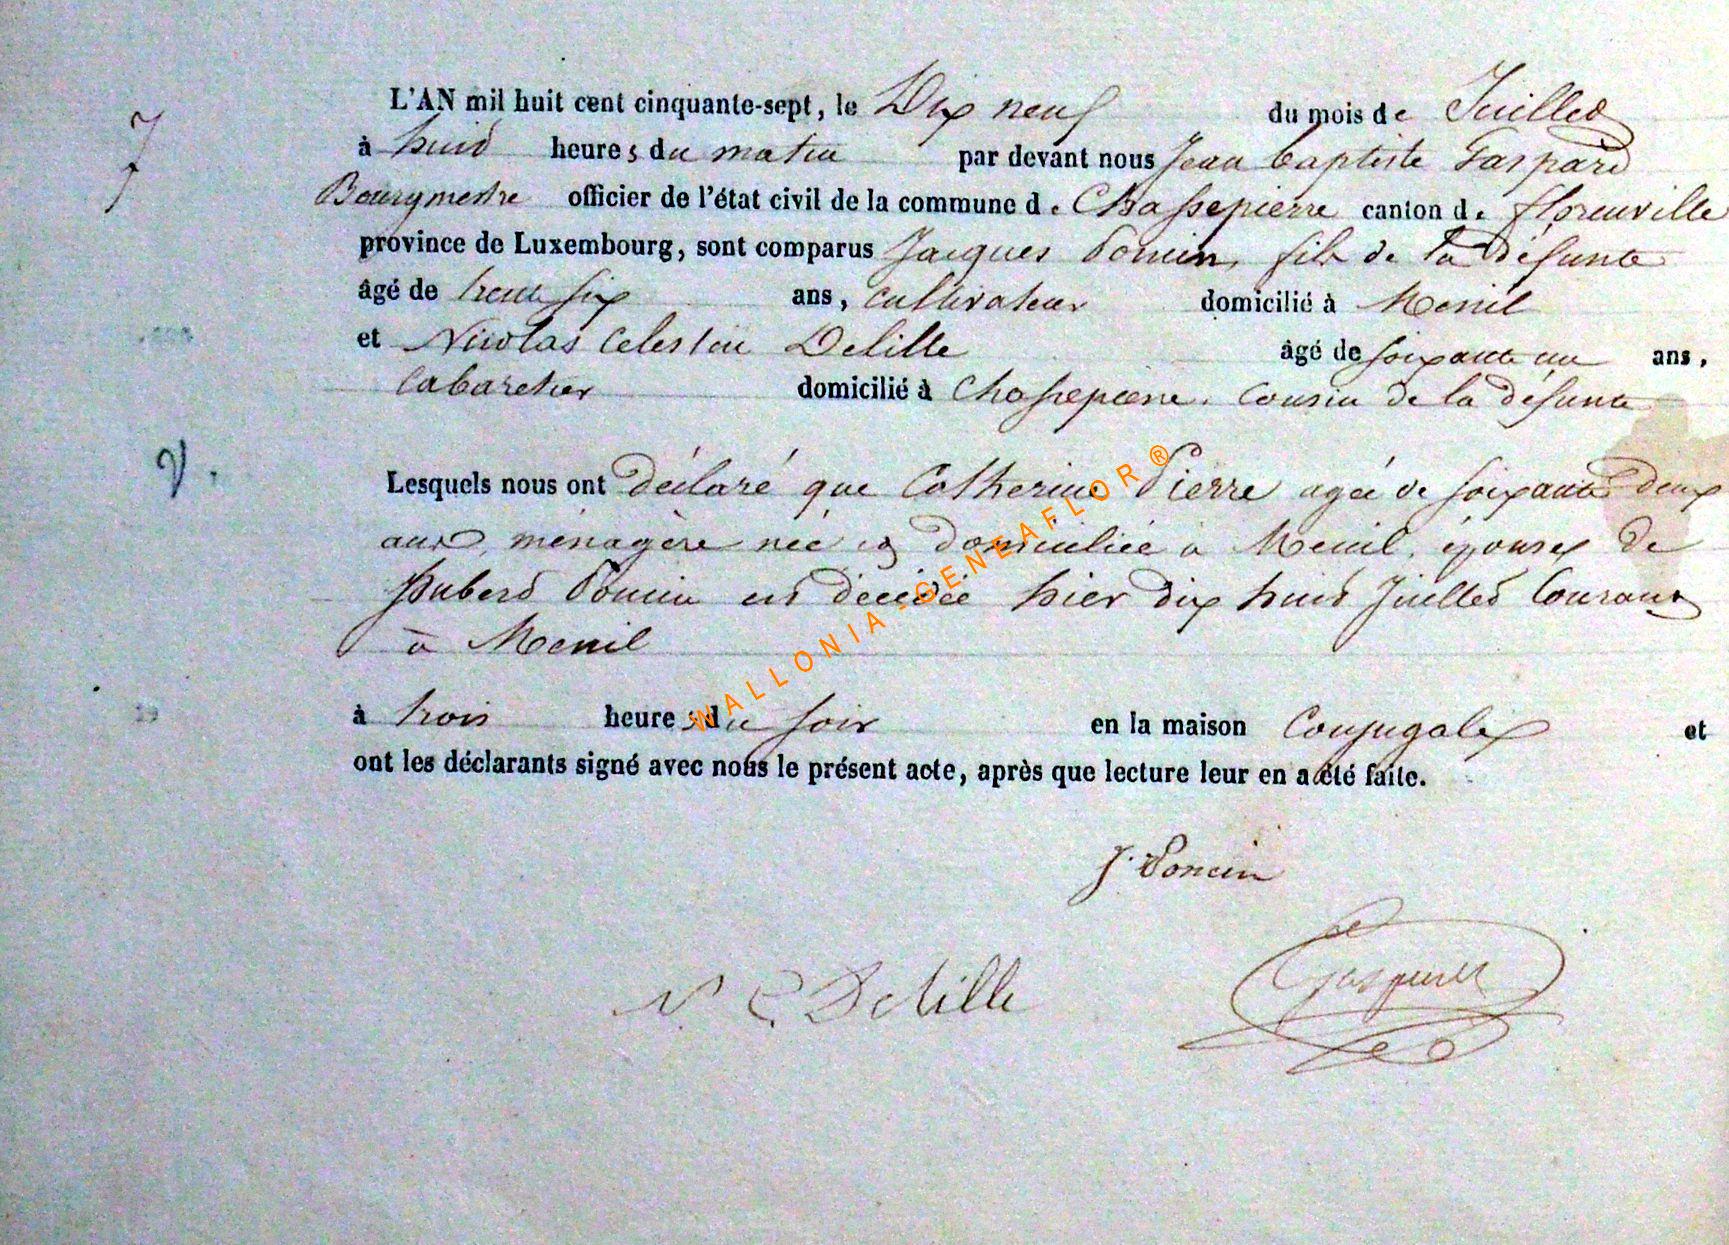 7
L'AN mil huit cent cinquante-sept, le Dix neuf du mois de Juillet
à huit heures du matin par devant nous Jean baptiste Gaspard
Bourgmestre officier de l'état civil de la commune de Chassepierre canton de florenville
province de Luxembourg, sont comparus Jacques Poncin, fils de la défunte
âgé de trente six ans, cultivateur domicilié à Menil
et Nicolas Celestin Delille âgé de soixante un ans,
Cabaretier domicilié à Chassepierre. Cousin de la défunte
Lesquels nous ont déclaré que Catherine Pierre agée de soixante deux
ans, ménagère née et domiciliée à Menil, épouse de
hubert Poncin est décédée hier dix huit Juillet Courant
à Menil
à trois heures du soir en la maison Conjugale et
ont les déclarants signé avec nous le présent acte, après que lecture leur en a été faite.
J. Poncin
N. C. Delille
Gaspard
WALLONIA-GENEAFLOR®